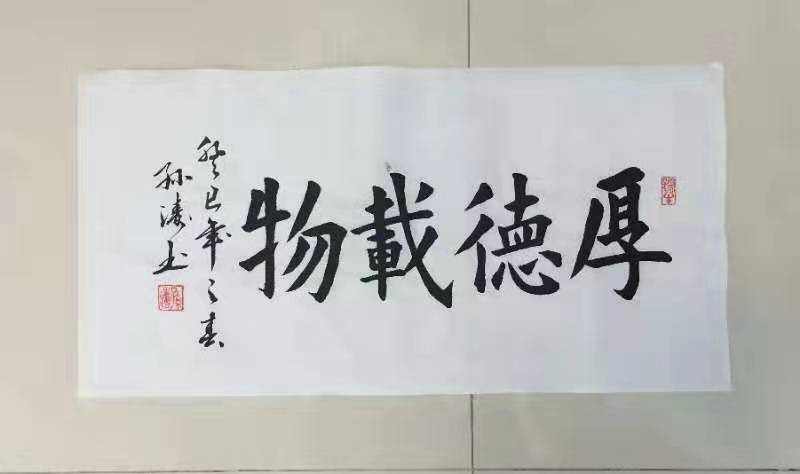 厚德載物
癸巳年之春
孙涛书